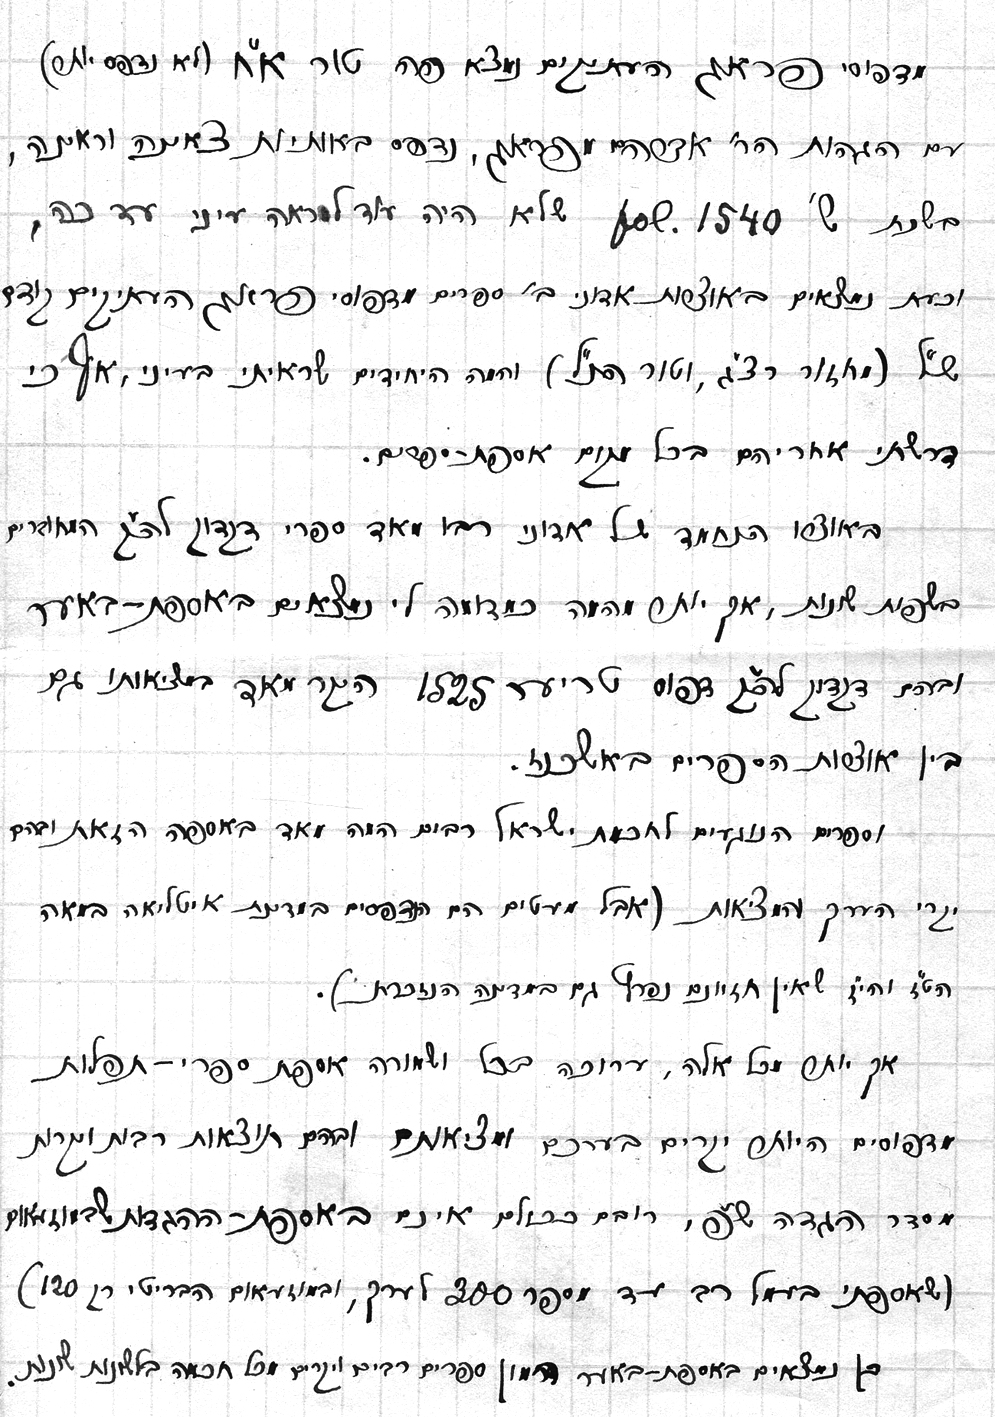 מדפוסי פראג העתיקים נמצא פה טור א״ח (לא נדפס יותר)
עם הגהות הר׳ אברהם מפראג, נדפס באותיות צאינה וראינה,
בשנת ש׳ 1540 .fol שלא היה עוד למראה עיני עד כה,
וכעת נמצאים באוצרות אדוני ב׳ ספרים מדפוסי פראג העתיקים קודם
ש״ל (מחזור רצ״ג, וטור הנ״ל) והמה היחידים שראיתי בעיני, אף כי
דרשתי אחריהם בכל מקום אספת־ספרים.
באוצרו הנחמד של אדוני רבו מאד ספרי דקדוק לה״ק המחוברים
בשפות שונות, אך יותר מהמה כמדומה לי נמצאים באספת־באער
ובהם דקדוק לה״ק דפוס טריער 1525 היקר מאד במציאותו גם
בין אוצרות הספרים באשכנז.
וספרים הנוגעים לחכמת ישראל רבים המה מאד באספה הזאת ובהם
יקרי הערך והמציאות (אבל מעטים הם הנדפסים במדינת איטליאה במאה
הט״ז והי״ז שאין חזיונם נפרץ גם במדינה הנזכרת).
אך יותר מכל אלה, ערוכה בכל ושמורה אספת ספרי־תפלות
מדפוסים היותר יקרים בערכם ומציאותם ובהם תוצאות רבות ויקרות
מסדר הגדה ש״פ, רובם ככולם אינם באספת־ההגדות שבמוזעאום
(שאספתי בעמל רב עד מספר 300 לערך, ובמוזעאום הבריטי רק 120)
כן נמצאים באספת־באער המון ספרים רבים ויקרים מכל חכמה בלשונות שונות.